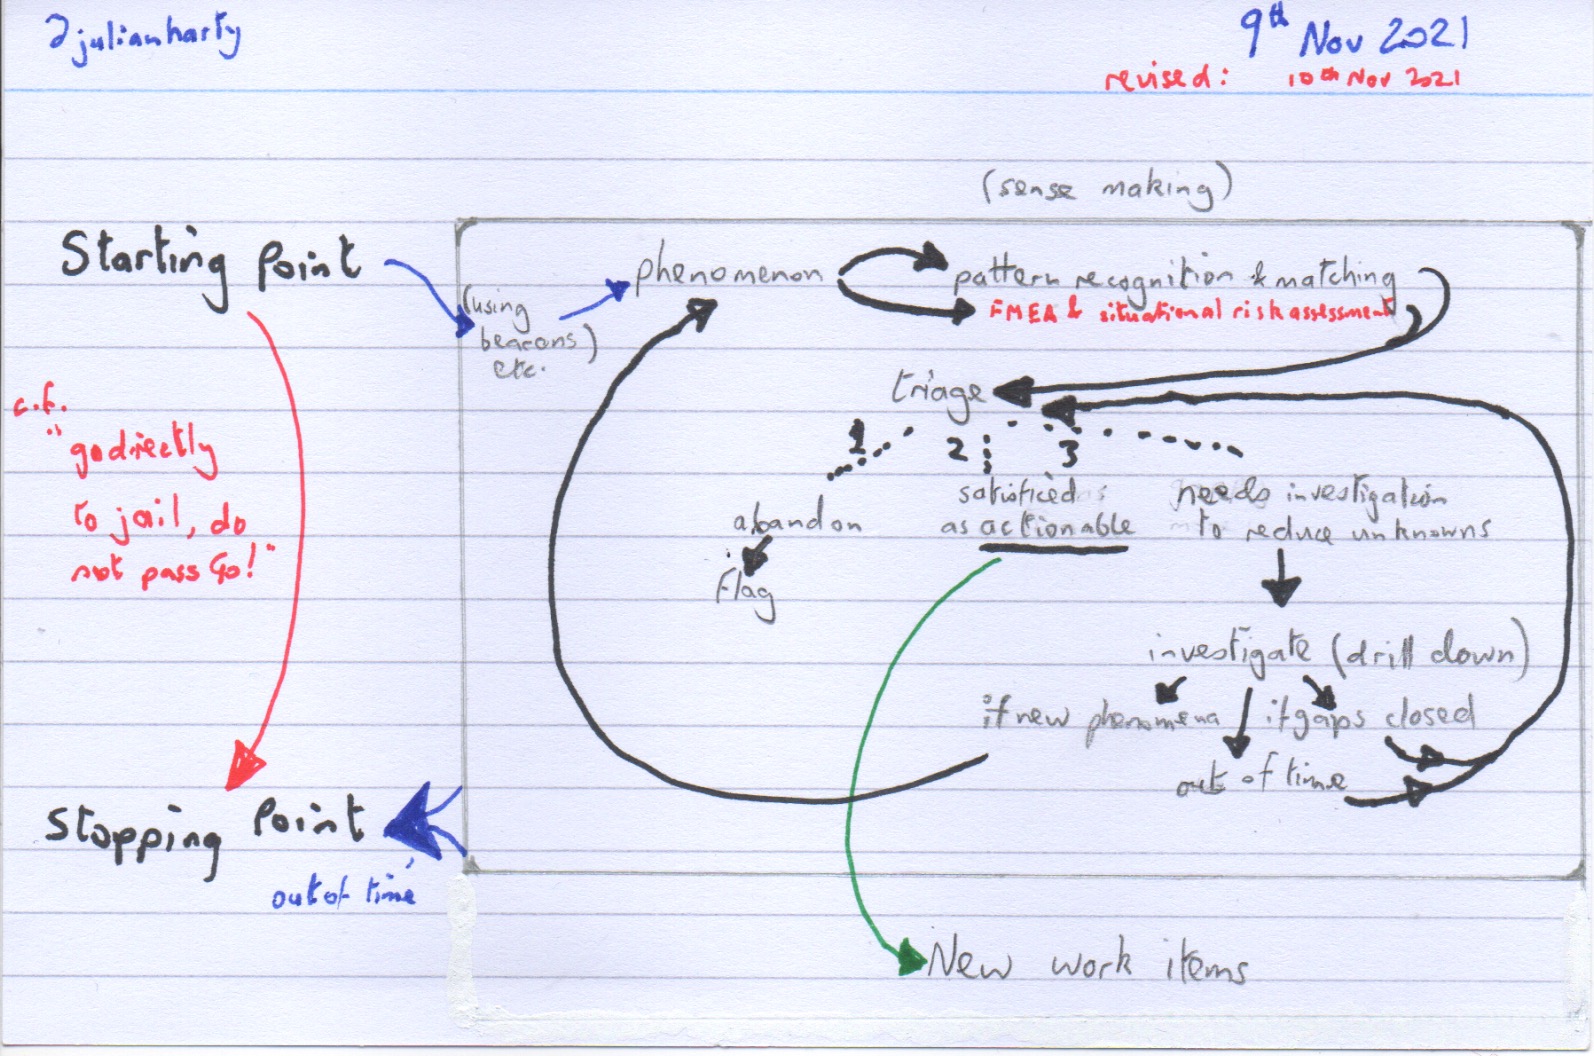 @julianharty
9th Nov 2021
revised: 10th Nov 2021
(sense making)
Starting Point
(using
beacons)
etc.
phenomenon
pattern recognition & matching
FMEA & situational risk assessment
triage
1 2 3
c.f.
"go directly
to jail, do
not pass Go!"
abandon
flag
satisficed
as actionable
needs investigation
to reduce unknowns
investigate (drill down)
if new phenomena
if gaps closed
out of time
Stopping Point
out of time
New work items